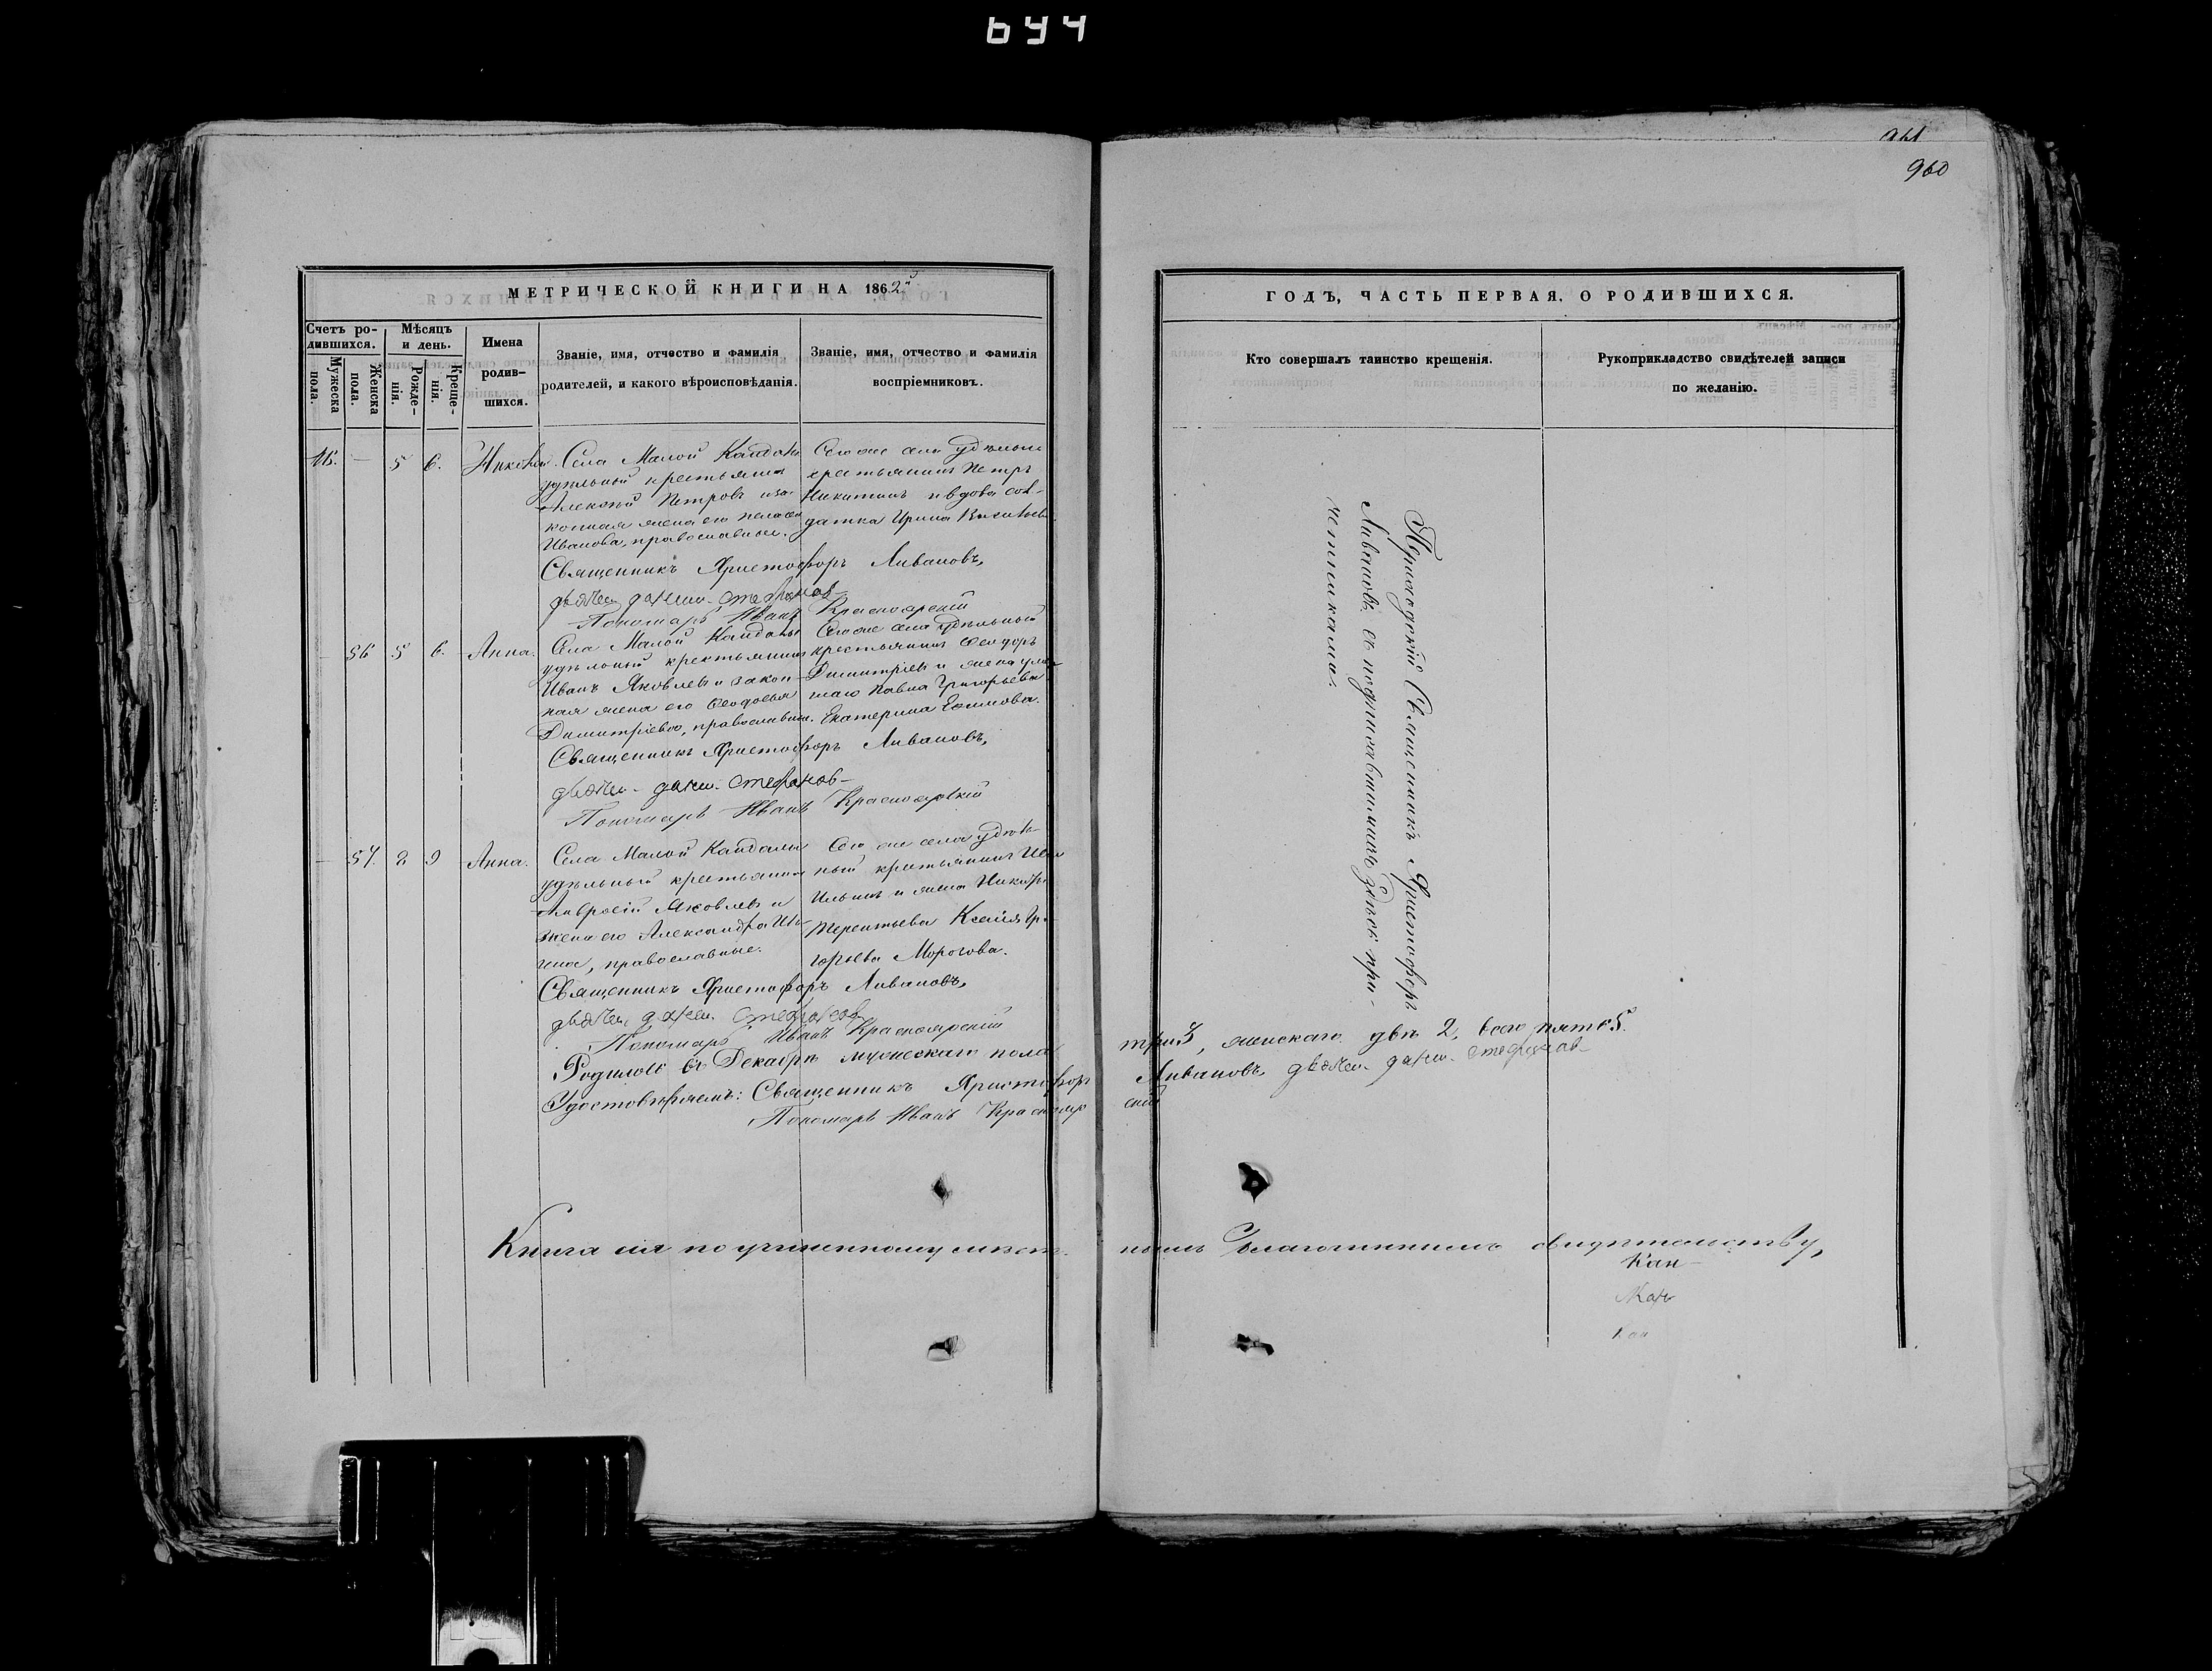 644
961
960
МЕТРИЧЕСКОЙ КНИГИ НА 1862й
ГОДЪ, ЧАСТЬ ПЕРВАЯ. О РОДИВШИХСЯ.
Счетъ родившихся.
Мужеска пола.
Женска пола.
Мѣсяцъ и день.
Рожденія.
Крещенія.
Имена родившихся.
Званіе, имя, отчество и фамилія
родителей, и какого вѣроисповѣданія.
Званіе, имя, отчество и фамилія
воспріемниковъ.
Кто совершалъ таинство крещенія.
Рукоприкладство свидѣтелей записи
по желанію.
— 5 6. Николай.
Села Малой Кандалы
удѣльный крестьянинъ
Алексѣй Петровъ и за-
конная жена его
Иванова, православные.
Сего же села удѣльный
крестьянинъ Петръ
Никитинъ и вдова сол-
датка Ирина Васильева
Священникъ Христофоръ Ливановъ,
дьячек данил стефанов
Пономарь Иванъ Красноярскій
56 5 6. Анна.
Села Малой Кандалы
удѣльный крестьянинъ
Иванъ Яковлевъ и закон-
ная жена его Ѳеодосья
Димитріева, православные.
Сего же села удѣльный
крестьянинъ Ѳеодоръ
Димитріевъ и жена
Павла Григорьева
Екатерина Ефимова.
Священникъ Христофоръ Ливановъ,
дьячек данил стефанов
Пономарь Иванъ Красноярскій
57. 8 9 Анна.
Села Малой Кандалы
удѣльный крестьянинъ
Амвросій Яковлевъ и
жена его Александра Иль-
ина, православные.
Сего же села удѣль-
ный крестьянинъ Иванъ
Ильинъ и жена
Терентьева Ксенія Гри-
горьева Морозова.
Священникъ Христофоръ Ливановъ,
дьячек данил стефанов
Пономарь Иванъ Красноярскій
Приходскій Священникъ Христофоръ
Ливановъ съ подписавшимися здѣсь при-
четниками.
Родилось въ Декабрѣ мужескаго пола три 3, женскаго двѣ 2, всего пять 5.
Удостовѣряемъ: Священникъ Христофоръ Ливановъ дьячек данил стефанов
Пономарь Иванъ Красноярскій
Книга сія по учиненному мѣстнымъ Благочиннымъ свидѣтельству,
Кан-